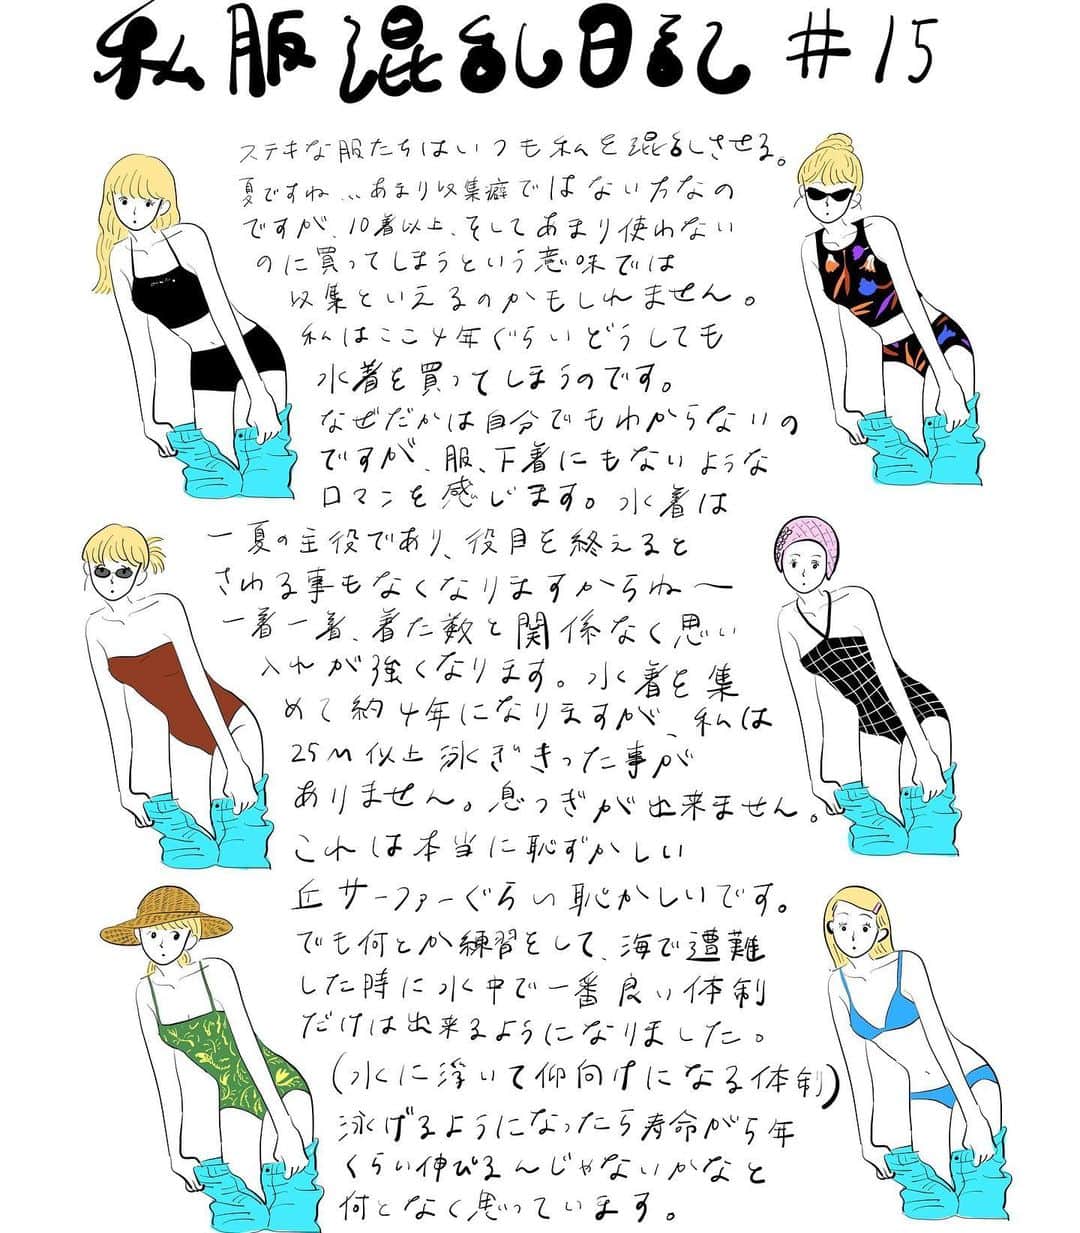 私服混乱日記 #15
ステキな服たちはいつも私を混乱させる。
夏ですね...あまり収集癖ではない方なの
ですが、10着以上、そしてあまり使わない
のに買ってしまうという意味では
収集といえるのかもしれません。
私はここ4年ぐらいどうしても
水着を買ってしまうのです。
なぜだかは自分でもわからないの
ですが、服、下着にもないような
ロマンを感じます。水着は
一夏の主役であり、役目を終えると
さわる事もなくなりますからね〜
一着一着、着た数と関係なく思い
入れが強くなります。水着を集
めて約4年になりますが、私は
25M以上泳ぎきった事が
ありません。息つぎが出来ません。
これは本当に恥ずかしい
丘サーファーぐらい恥かしいです。
でも何とか練習をして、海で遭難
した時に水中で一番良い体制
だけは出来るようになりました。
(水に浮いて仰向けになる体制)
泳げるようになったら寿命が5年
くらい伸びるんじゃないかなと
何となく思っています。